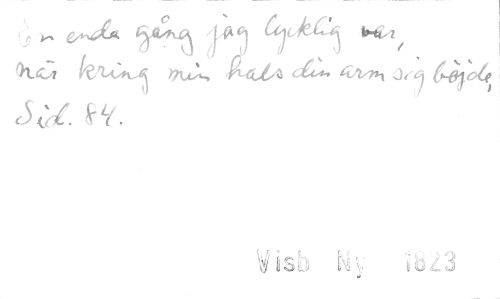 En enda gång jag lycklig var,
när kring min hals din arm sig böjde,
Sid. 84.
Visb Ny 1823